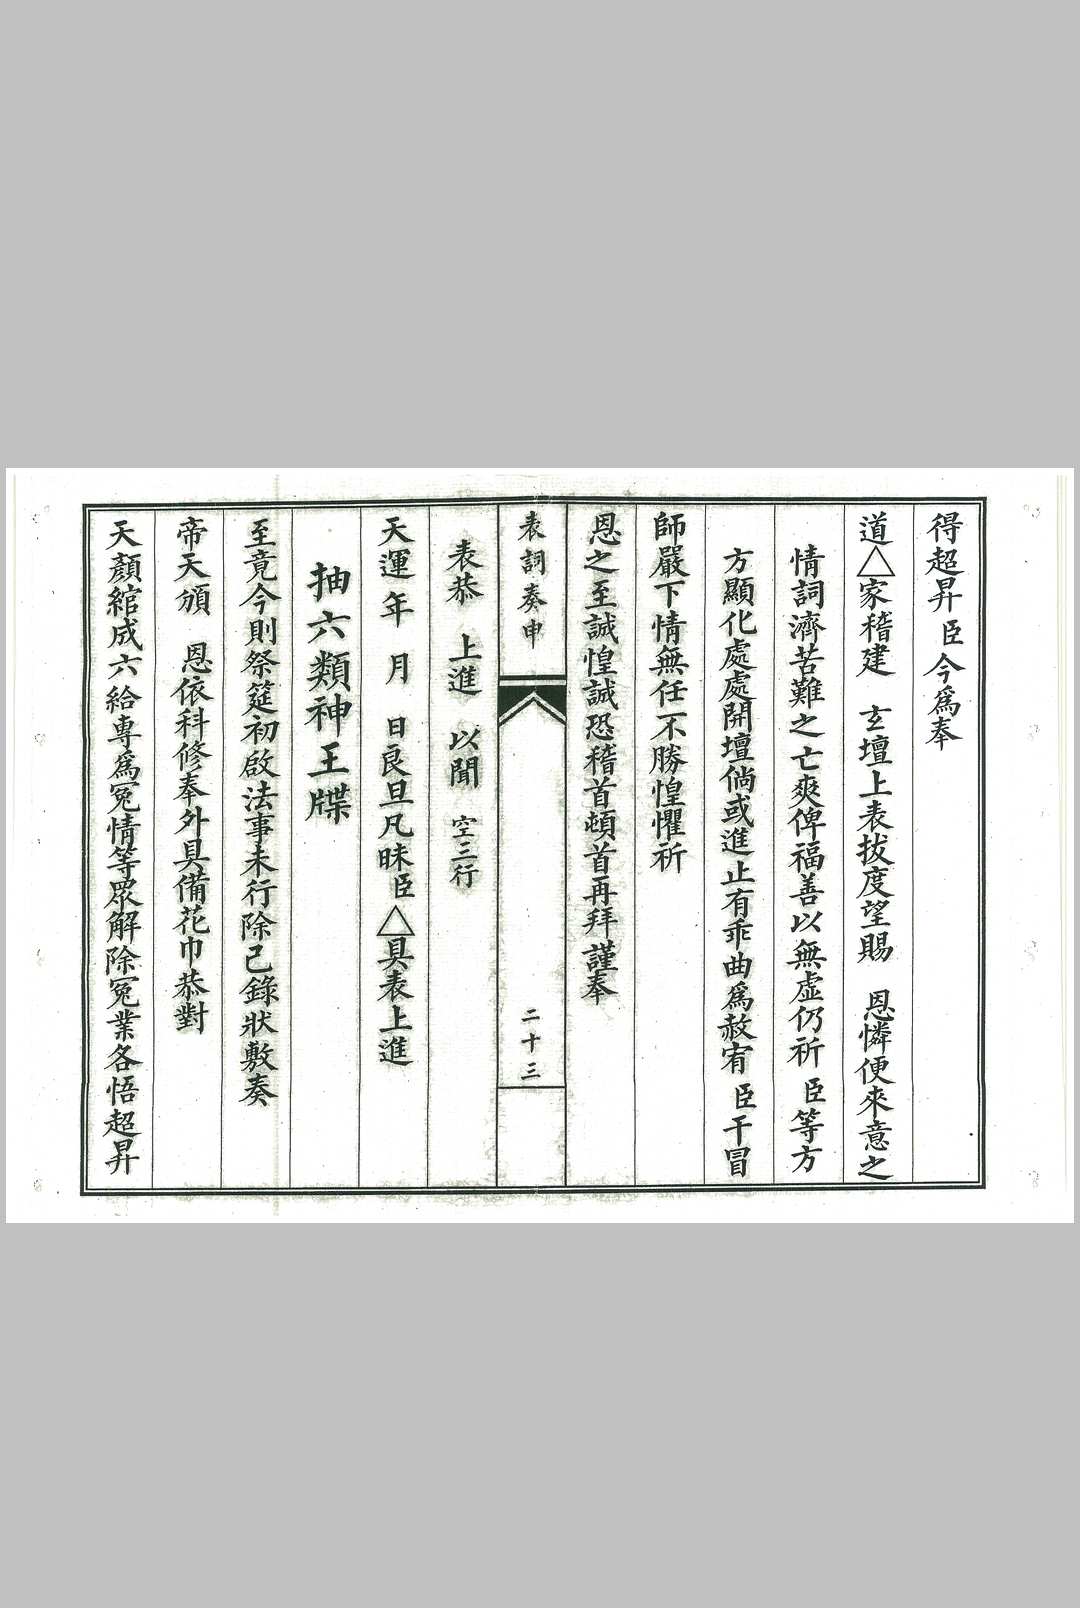 得超昇臣今爲奉
道△家稽建 玄壇上表拔度望賜 恩憐便來意之
情詞濟苦難之亡爽俾福善以無虛仍祈 臣等方
方顯化處處開壇倘或進止有乖曲爲赦宥 臣干冒
師嚴下情無任不勝惶懼祈
恩之至誠惶誠恐稽首頓首再拜謹奉
表詞奏申
二十三
表恭 上進 以聞 空三行
天運年 月 日良旦凡昧臣△具表上進
抽六類神王牒
至竟今則祭筵初啟法事未行除已錄狀敷奏
帝天頒 恩依科修奉外具備花巾恭對
天顏綰成六給專爲冤情等眾解除冤業各悟超昇